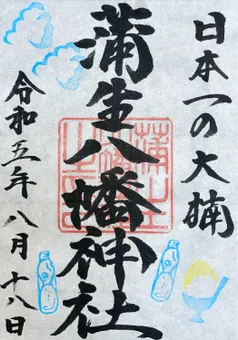 日本一の大楠
蒲生八幡神社
令和五年八月十八日